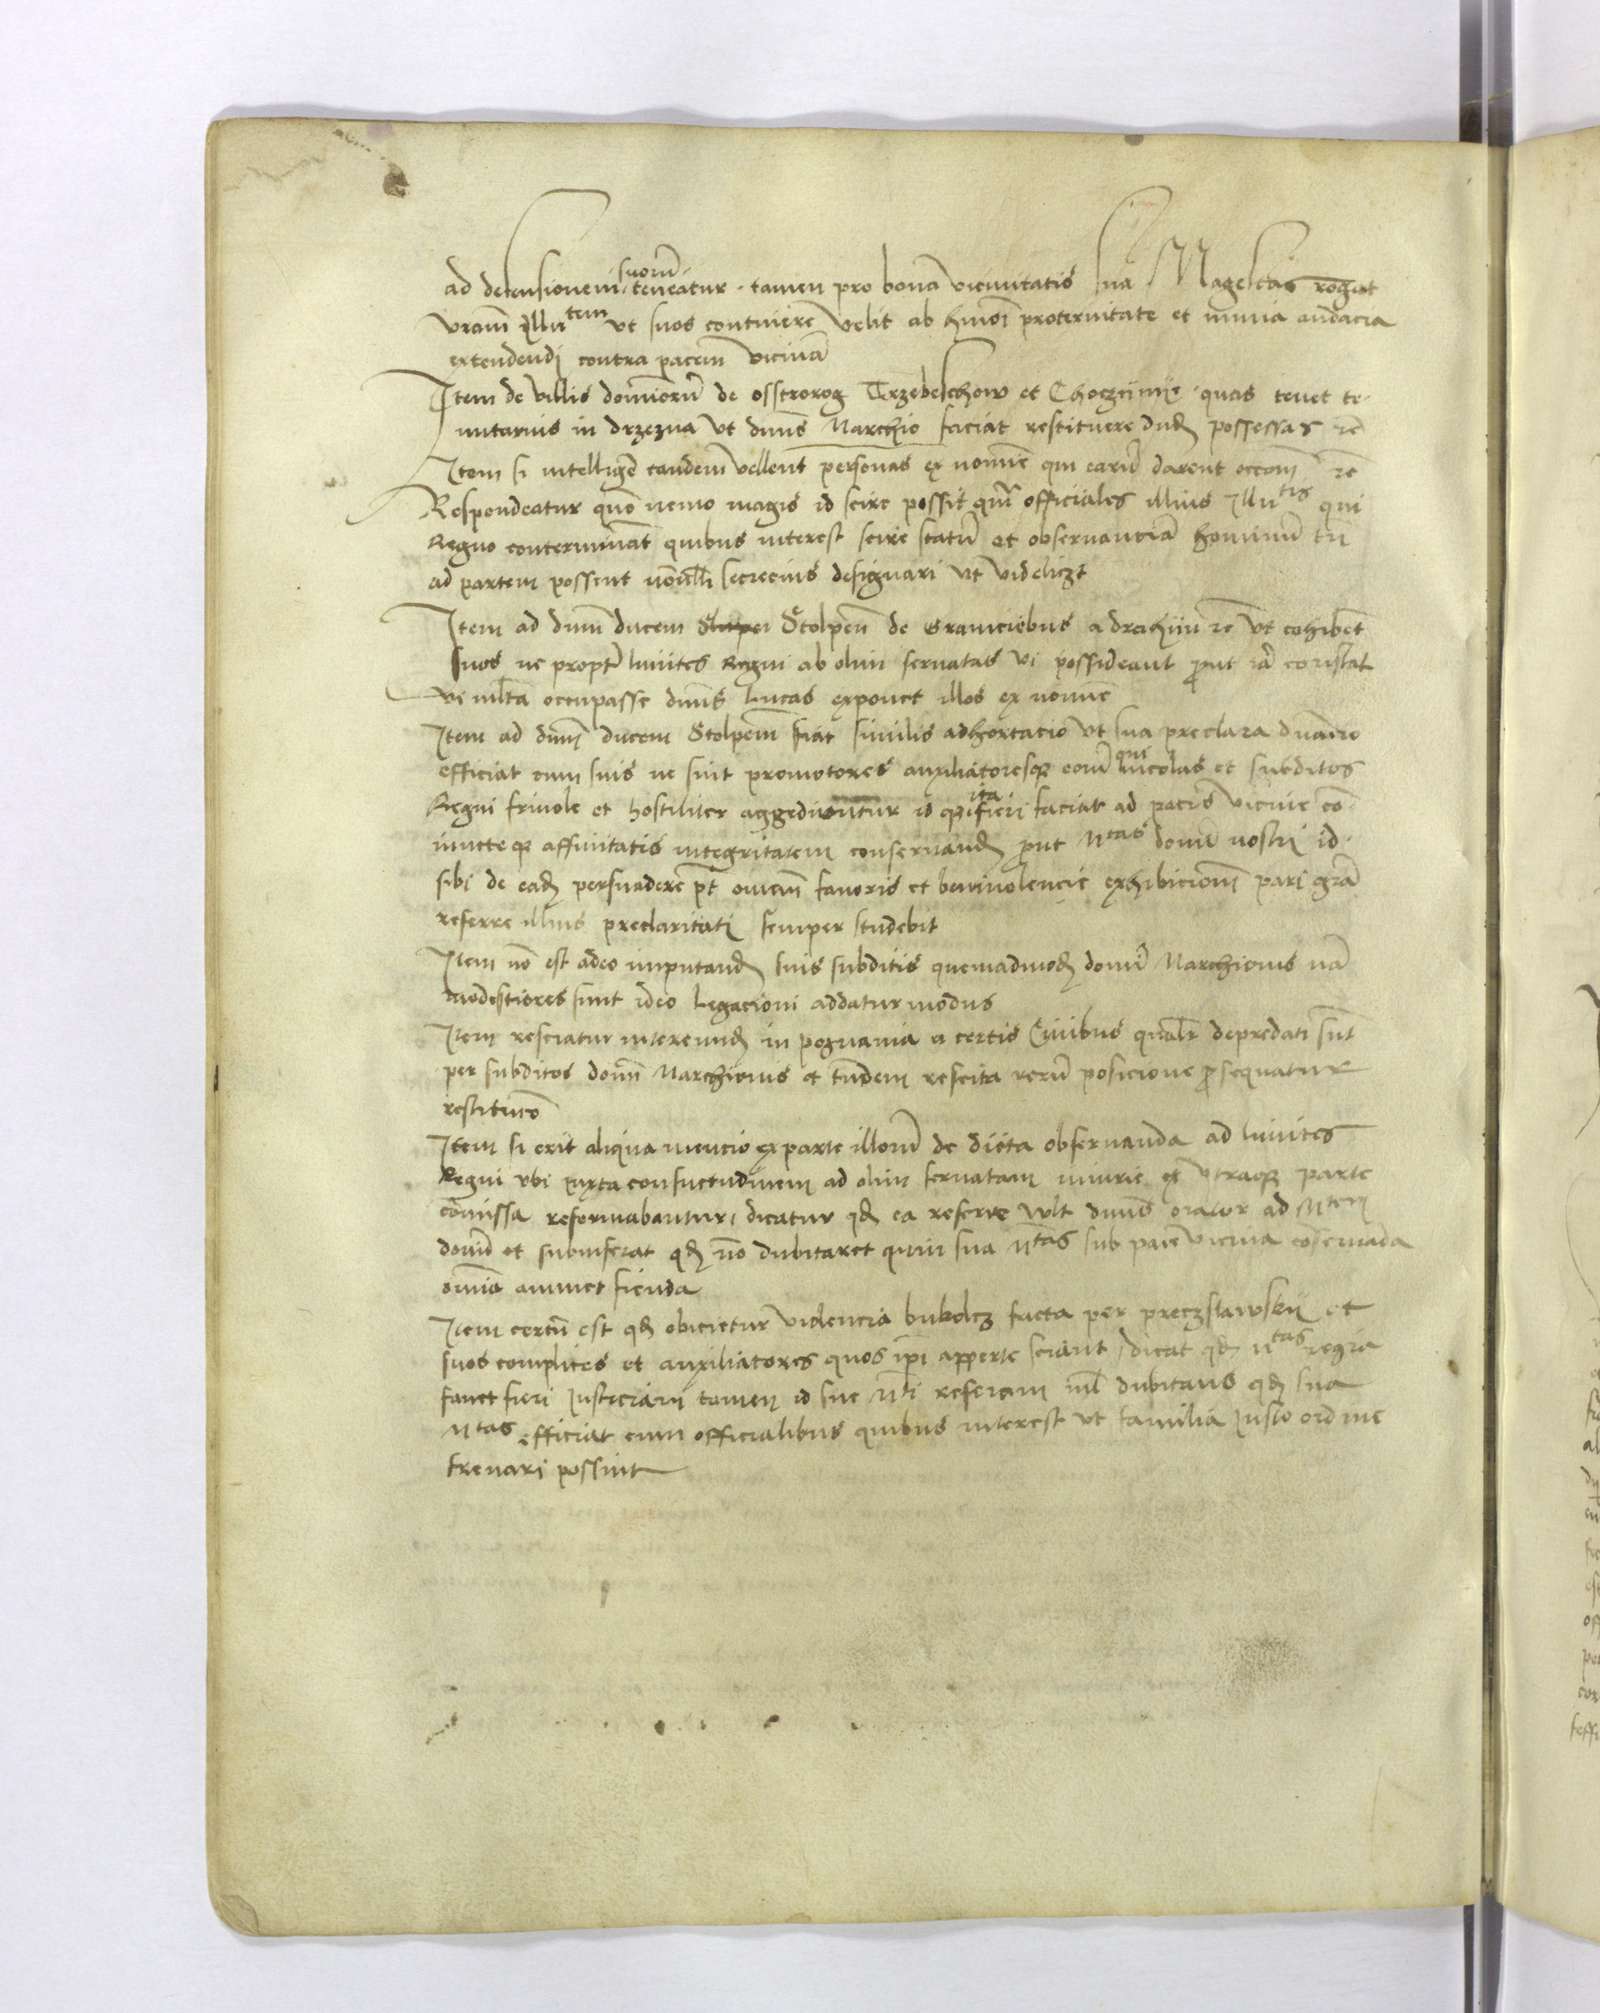 ad defensionem suorū teneatur · tamen pro bona vicinitatis sua Magestas rogat
vram̄ Illutem vt suos continere velit ab hm̄oi proteruitate et nimia audacia
extendendi contra pacem vicinā
Item de villis dominorū de osstrorog Trzebelchow et Choczimie · quas tenet te-
nutarius in drzezna vt dnns Marchio faciat restituere dud possessas rē
Item si intelligē tandem vellent personas ex nomīe qui earū darent occōm rē
Respondeatur quō nemo magis id scire possit qm̄ officiales illius Illutis qui
Regno conterminant quibus interest scire statū et obseruantiā hominū tn̄
ad partem possent nōnulli secrecius designari vt videliczt
Item ad dnm̄ ducem Stolpen̄ de Graniciebus a drahim rē vt cohibet
suos ne propt̄ limites Regni ab olim seruatas vi possideant put iā constat
vi multa occupasse dnns Lucas exponet illos ex nomīe
Item ad dnm̄ ducem Stolpem̄ fiat similis adhortatio vt sua preclara dnācio
efficiat cum suis ne sint promotores auxiliatoresqꝫ eorū qui incolas et subditos
Regni friuole et hostiliter aggrediuntur id qꝫ ita fieri faciat ad pacis vicinie cō-
iuncteqꝫ affinitatis integritatem conseruand put Mtas domī nostri id ·
sibi de ead persuadere pt omem̄ fauoris et beniuolencie exhibicionē pari grā
referre illius preclaritati semper studebit
Item nō est adeo imputand suis subditis quemadmod domī Marchionis nā
modestiores sunt ideo Legacioni addatur modus
Item resciatur intereund in poznania a certis Ciuibus qualr̄ depredati sunt
per subditos domī Marchionis et tandem rescita rerū posicione psequatur
restitucō
Item si erit aliqua mencio ex parte illorū de dieta obseruanda ad limites
Regni vbi iuxta consuetudinem ad olim seruatam iniurie ex vtraqꝫ parte
cōmissa reformabantur, dicatur qd ea referre vult dnns orator ad Mtem
domī et subinferat qd nō dubitaret quin sua Mtas sub pace vicina cōseruada
omīa annuet fienda
Item certū est qd obicietur violencia bukolcz facta per preczslawskii et
suos complices et auxiliatores quos ip̄i apperte sciant, dicat qd Mtas regia
fauet fieri Iusticiam tamen id sue Mti referam nil dubitans qd sua
Mtas efficiat cum officialibus quibus interest vt familia iusto ordine
frenari possint